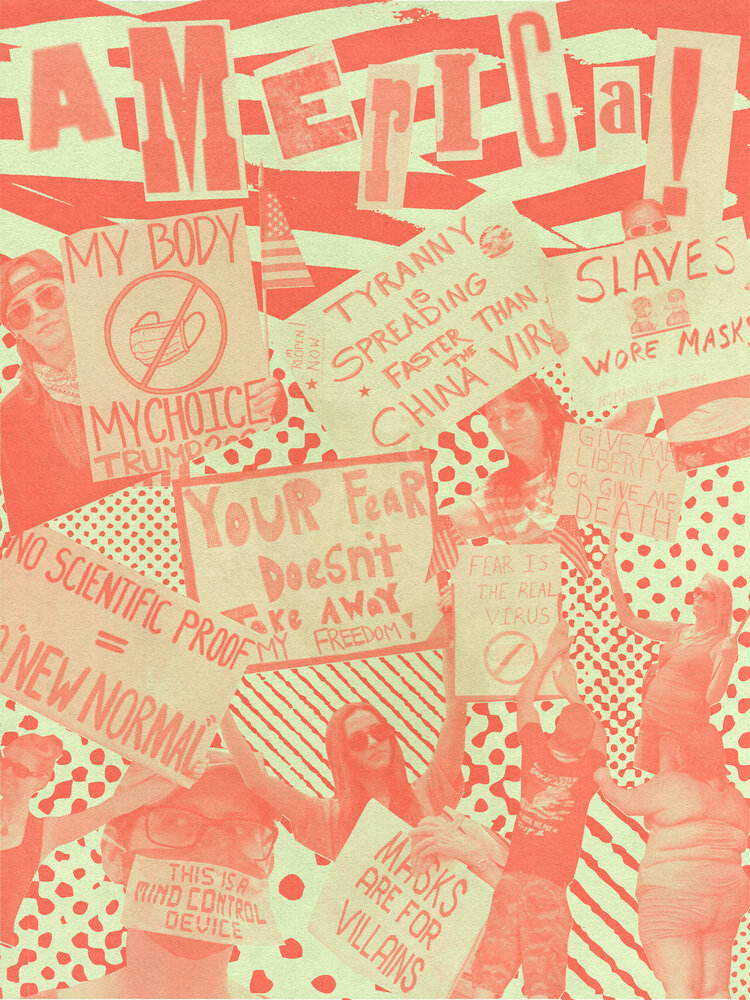 AMErICa!
MY BODY
MY CHOICE
TRUMP
REOPEN
NOW
TYRANNY
IS
SPREADING
FASTER THAN
THE
CHINA VIRU
SLAVES
WORE MASKS
GIVE ME
LIBERTY
OR GIVE ME
DEATH
YOUR FeaR
DoesN't
Take AWAY
MY FREEDOM!
FEAR IS
THE REAL
VIRUS
NO SCIENTIFIC PROOF
=
"NEW NORMAL"
THIS IS A
MIND CONTROL
DEVICE
MASKS
ARE FOR
VILLAINS